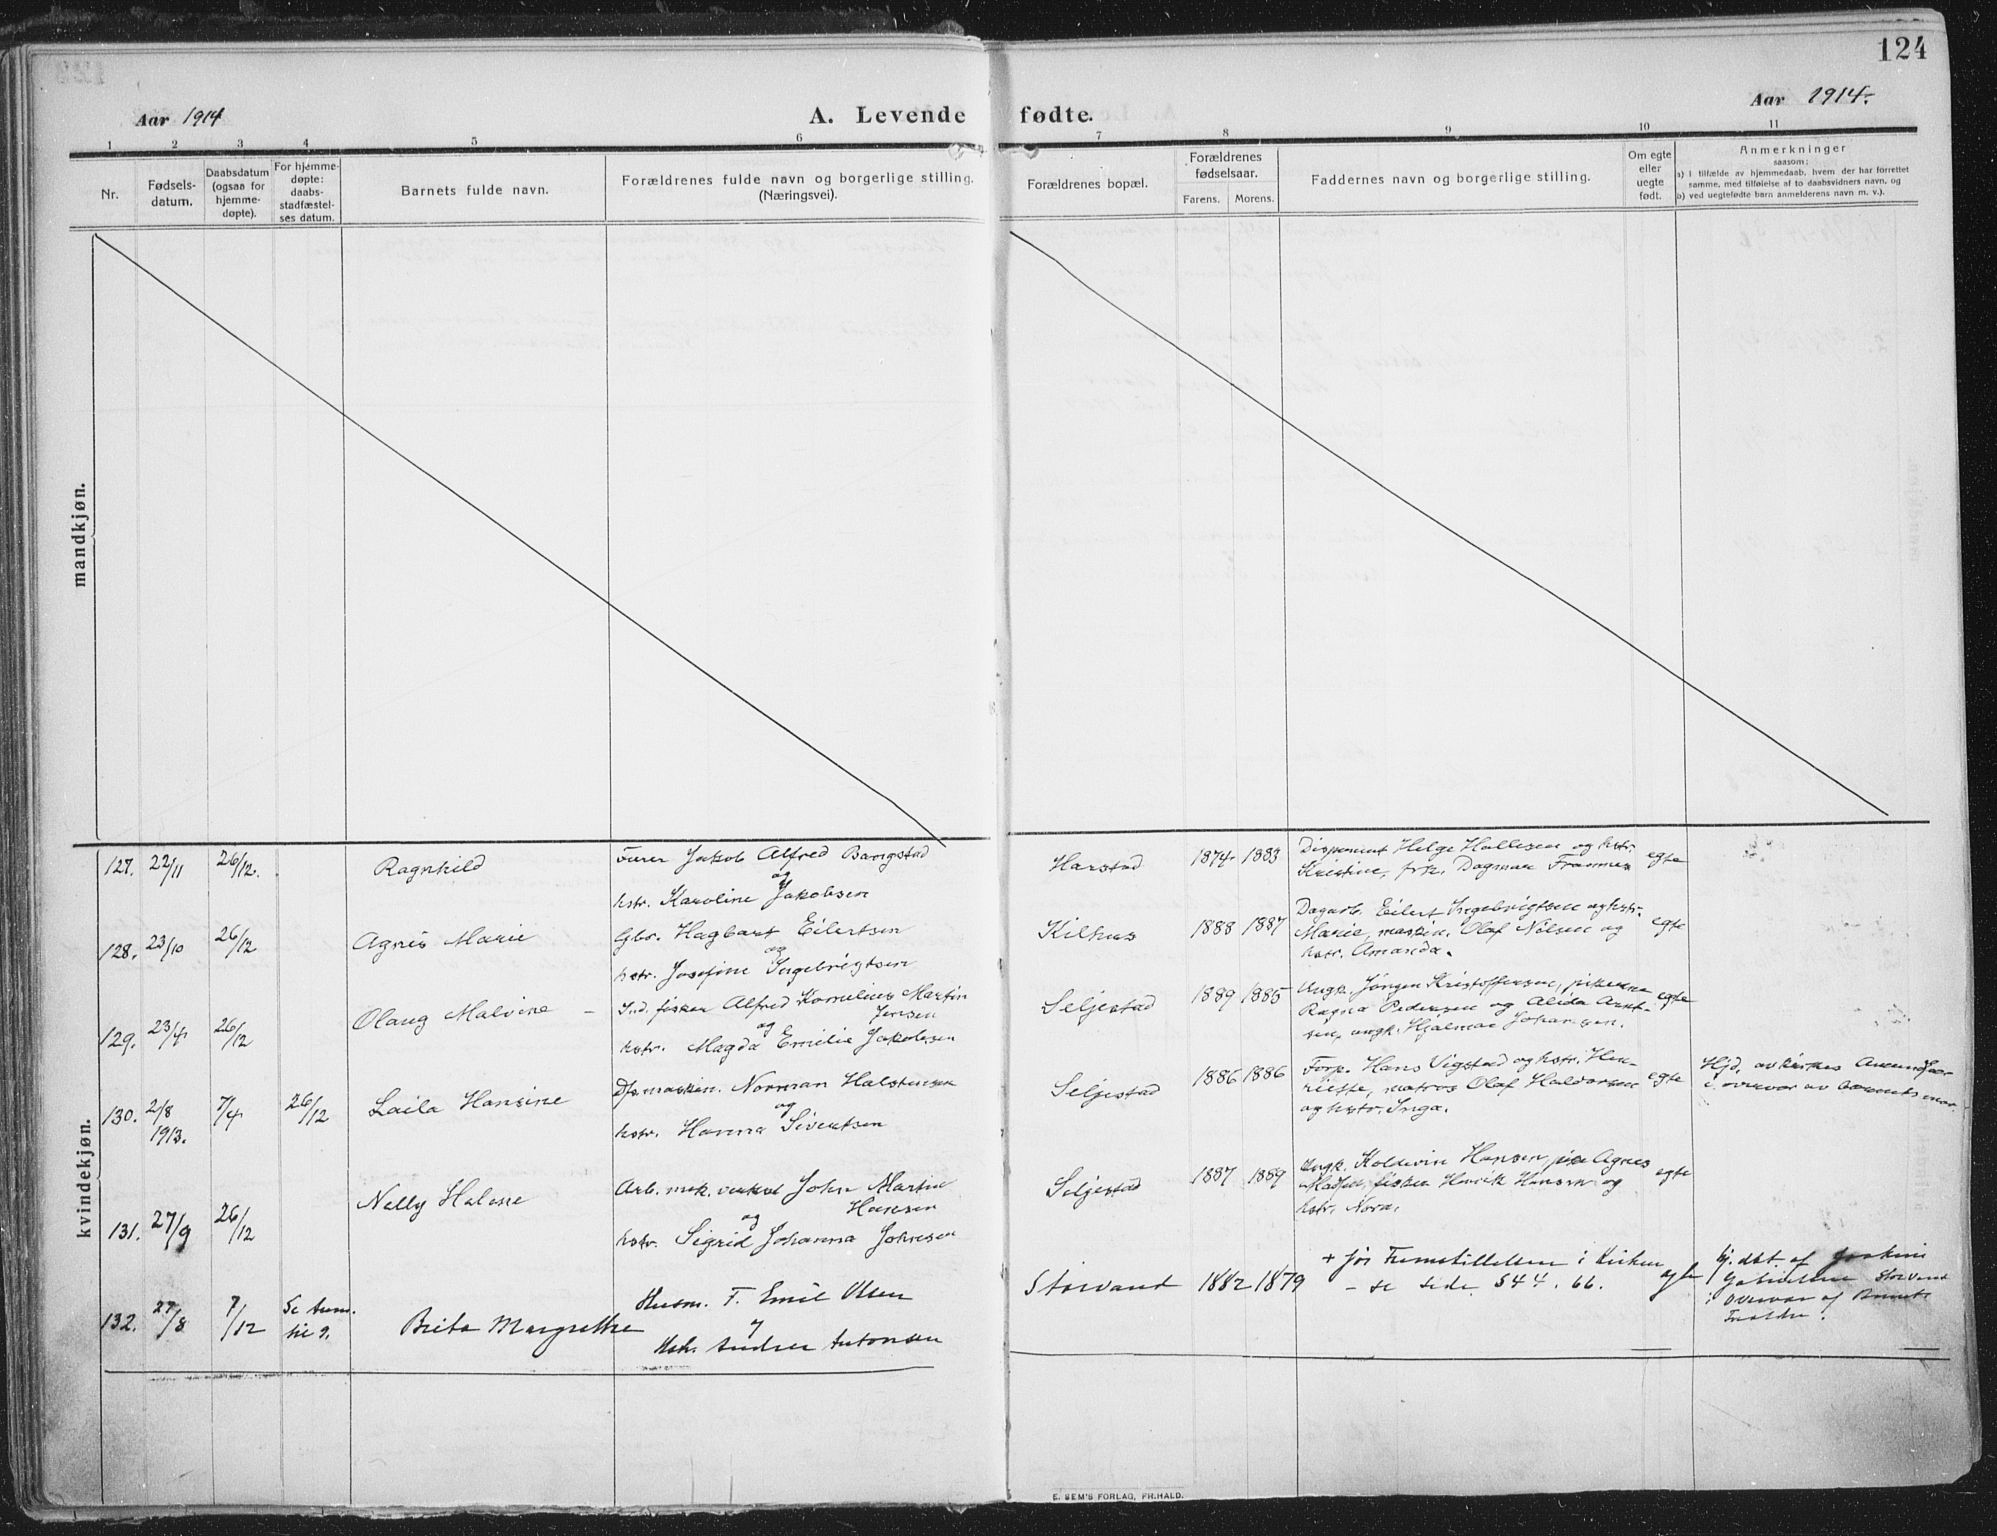 124
Aar 1914
A. Levende fødte.
Aar 1914.
1 2 3 4 5 6 7 8 9 10 11
Nr.
Fødsels-
datum.
Daabsdatum
(ogsaa for
hjemme-
døpte).
For hjemme-
døpte:
daabs-
stadfæstel-
ses datum.
Barnets fulde navn.
Forældrenes fulde navn og borgerlige stilling.
(Næringsvei).
Forældrenes bopæl.
Forældrenes
fødselsaar.
Farens. Morens.
Faddernes navn og borgerlige stilling.
Om egte
eller
uegte
født.
Anmerkninger
saasom:
a) i tilfælde av hjemmedaab, hvem der har forrettet
samme, med tilføielse af to daabsvidners navn, og
b) ved uegtefødte barn anmelderens navn m. v.).
mandkjøn.
kvindekjøn.
127. 22/11 26/12. Ragnhild
Furer Jakob Alfred Bangstad
og
hstr. Karoline Jakobsen
Harstad 1874 1883
Disponent Helge Hallesen og hstr.
Kristine, frk. Dagmar egte
128. 23/10 26/12 Agnes Marie
Gbr. Hagbart Eilertsen
og
hstr. Josefine Ingebrigtsen
Kilhus 1888 1887
Dagarb. Eilert Ingebrigtsen og hstr.
Marie, maskin. Olaf Nilsen og egte
hstr. Amanda.
129. 23/4 26/12 Olaug Malvine –
Ind. fisker Alfred Kornelius Martin
Jensen
og
hstr. Magda Emilie Jakobsen
Seljestad 1889 1885
Ungk. Jörgen Kristoffersen, pikerne egte
Ragna Pedersen og Alida Arnt-
sen, ungk. Hjalmar Johansen.
130. 2/8 1913. 7/4 26/12 Laila Hansine
Dsmaskin. Norman Halstensen
og
hstr. Hanna Sivertsen
Seljestad 1886 1886
Forp. Hans Vigstad og hstr. Hen-
riette, matros Olaf Haldorsen egte
og hstr. Inga.
Hjd. av
i overvær av barnets mor.
131. 27/9 26/12 Nelly Helene
Arb. mek. verkst John Martin
Hansen
og
hstr. Sigrid Johanna Johnsen
Seljestad 1887 1889
Ungk. Koldevin Hansen, pike Agnes egte
Madsen, fisker Henrik Hansen og
hstr. Nora.
132. 27/8 7/12 Se anm.
til 9. Brita Margrethe
Husm. F. Emil Olsen
og
Hstr. Andrea Antonsen
Storvand 1882 1879
+ før Fremstillelsen i Kirken egte
– se side 544. 66.
hj. dbt. af Joakim
Storvand
i overvær af Barnets
Forældre.
E. SEM'S FORLAG, FR.HALD.